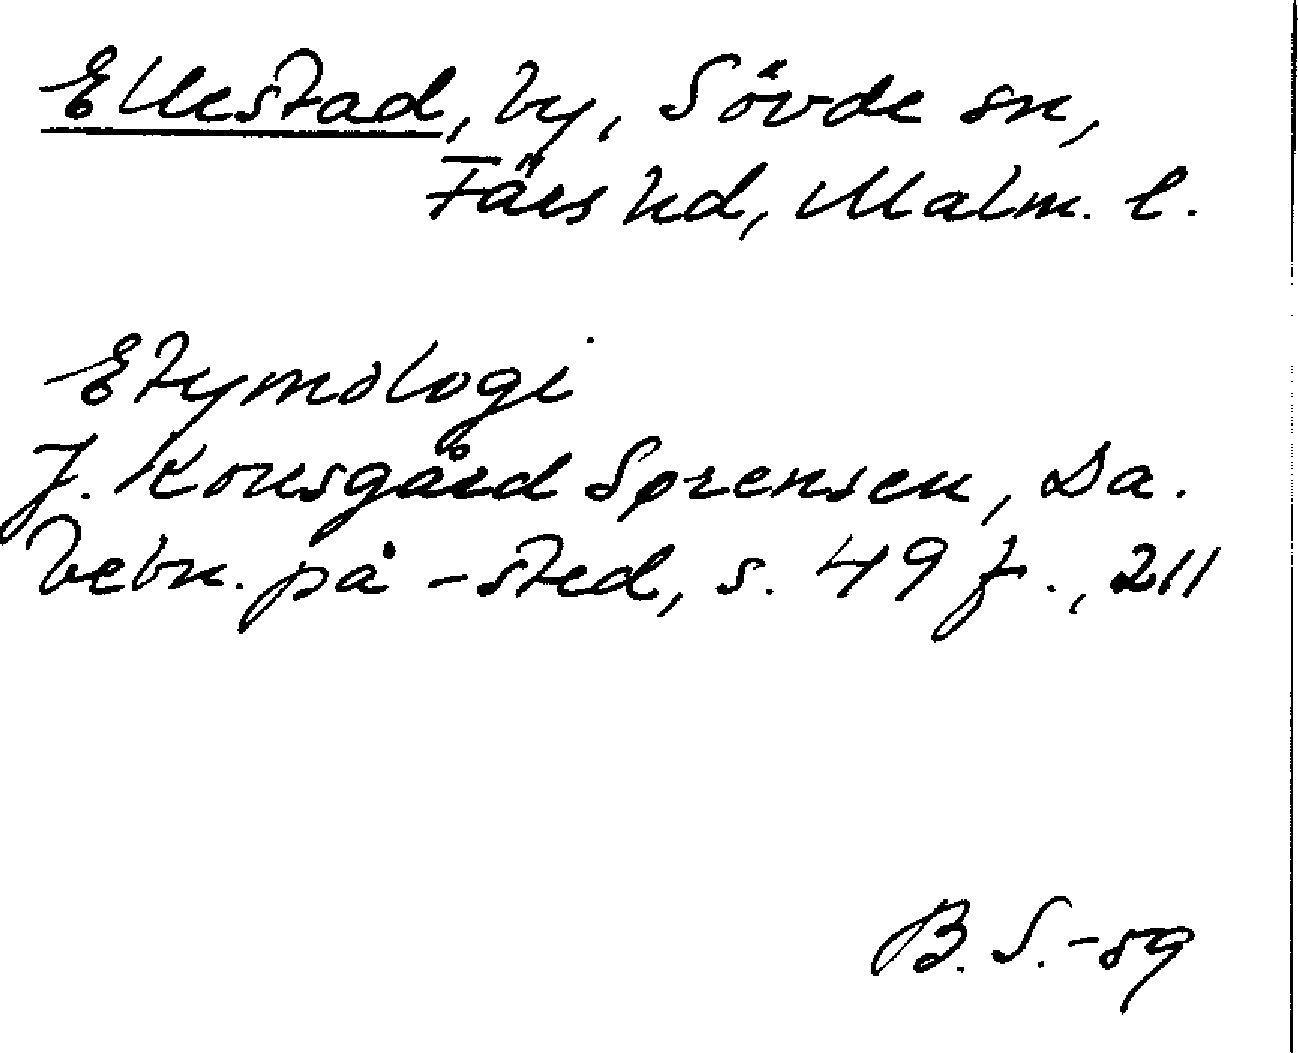 Ellestad, by, Sövde sn,
Färs hd, Malm. l.
Etymologi
J. Kousgård Sørensen, Da.
bebn. på -sted, s. 49 f., 211
B. S.-59